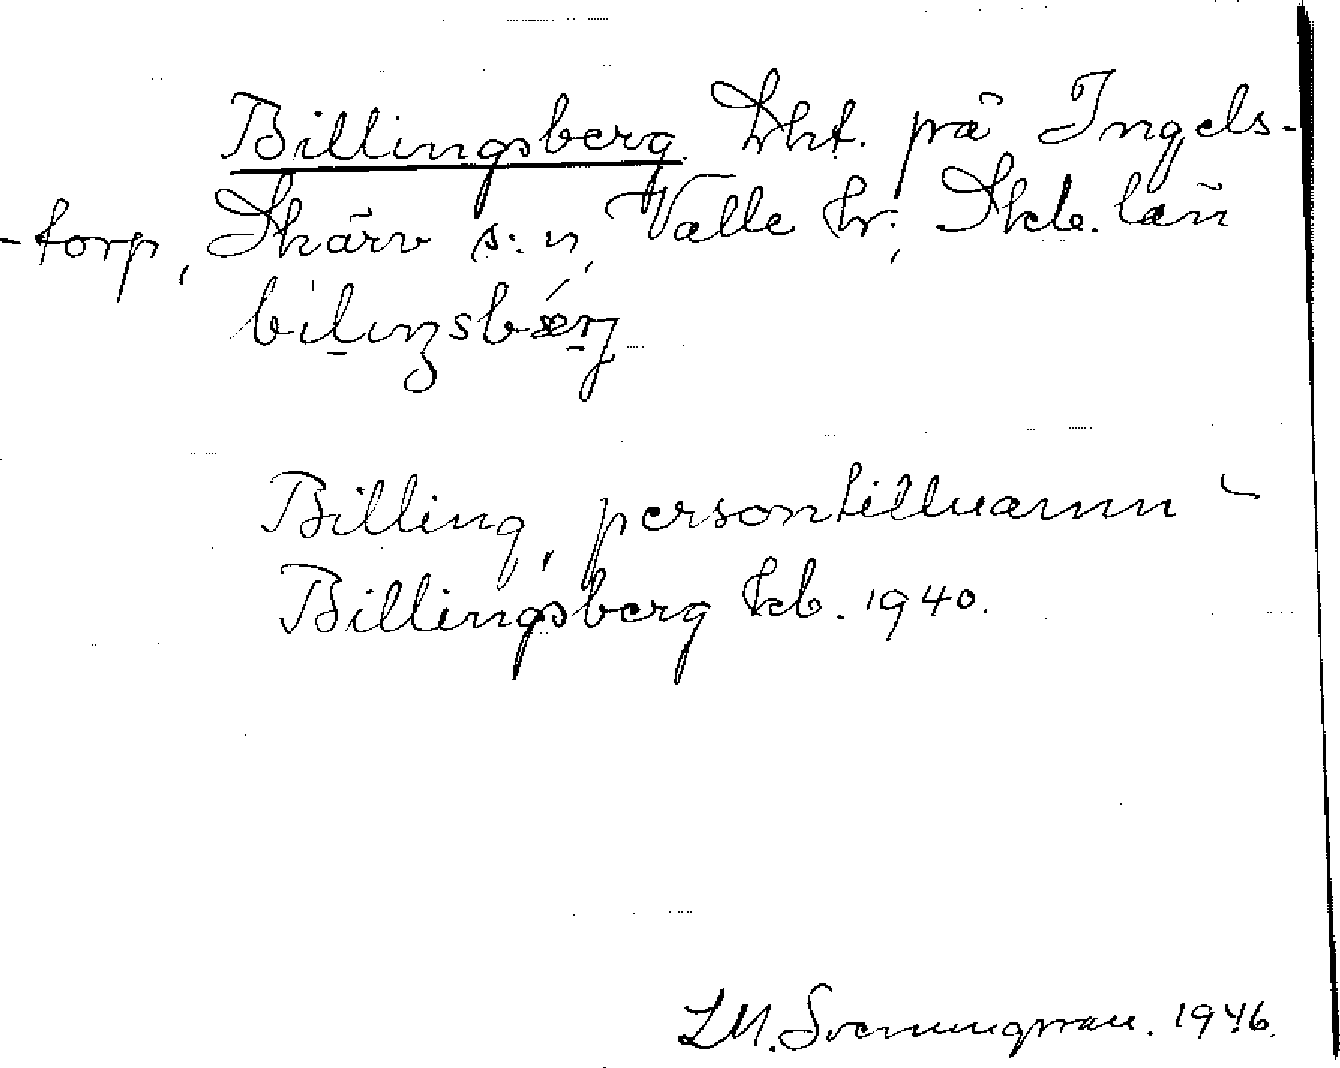 Billingsberg lht. på Ingels-
-torp, Skärv s:n, Valle hr; Skb. län
Billing, persontillnamn –
Billingsberg kb. 1940.
L.M. Svenungsson. 1946.